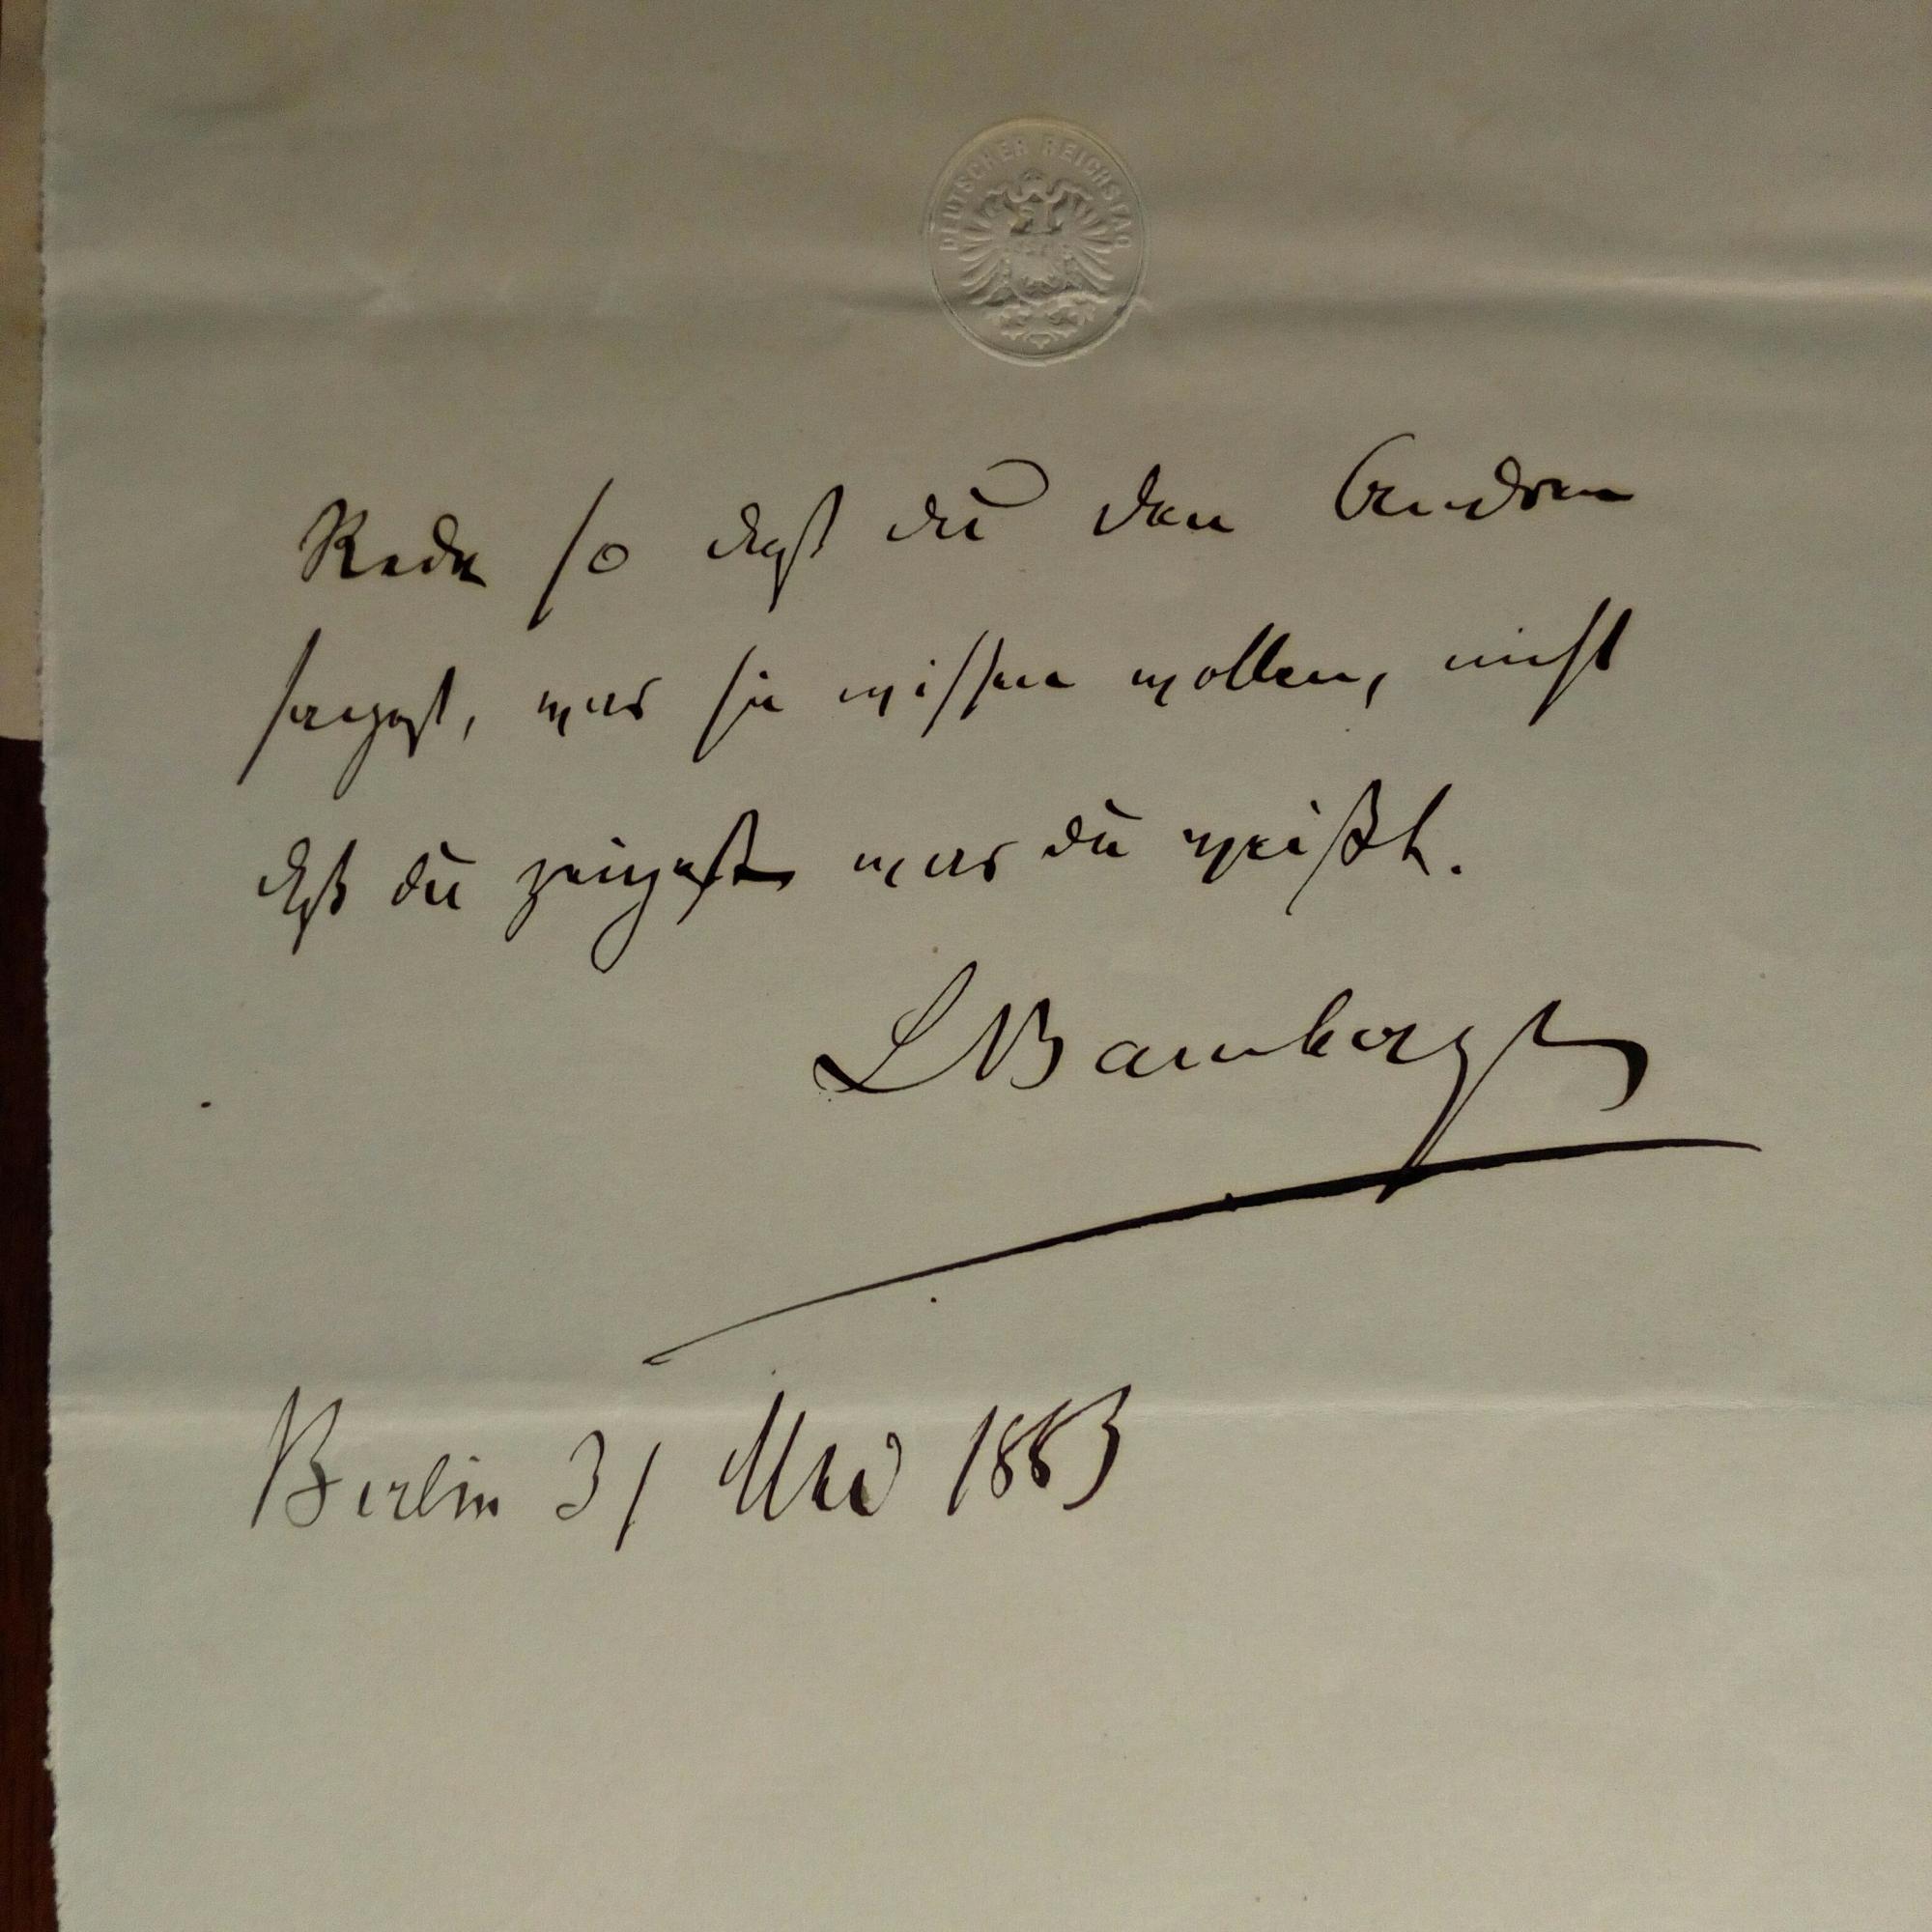 DEUTSCHER REICHSTAG
Rede so daß du den Andren
sagest, was sie wissen wollen, nicht
daß du zeigest was du weißt.
L Bamberger
Berlin 31 Mai 1883